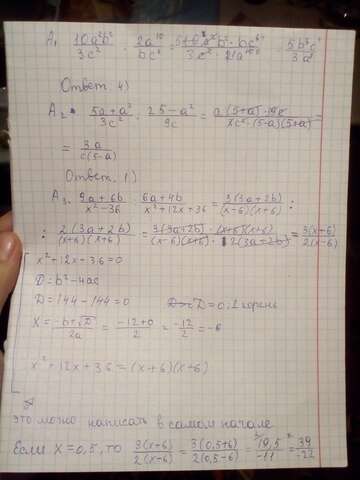 A₁ 10a²b²/3c² : 2a¹⁰/bc² = 5b³c/3a⁸
Ответ. 4)
A₂ 5a+a²/3c² : 25-a²/9c = a(5+a)·9c/3c²·(5-a)(5+a) =
= 3a/c(5-a)
Ответ. 1)
A₃. 9a+6b/x²-36 : 6a+4b/x²+12x+36 = 3(3a+2b)/(x-6)(x+6) :
: 2(3a+2b)/(x+6)(x+6) = 3(3a+2b)·(x+6)(x+6)/(x-6)(x+6)·2(3a+2b) = 3(x+6)/2(x-6)
x²+12x+36=0
D=b²-4ac
D=144-144=0 D=0; 1 корень
X=-b+√D/2a = -12+0/2 = -12/2 = -6
x²+12x+36=(x+6)(x+6)
это можно написать в самом начале
Если X=0,5, то 3(x+6)/2(x-6) = 3(0,5+6)/2(0,5-6) = 19,5/-11 = 39/-22